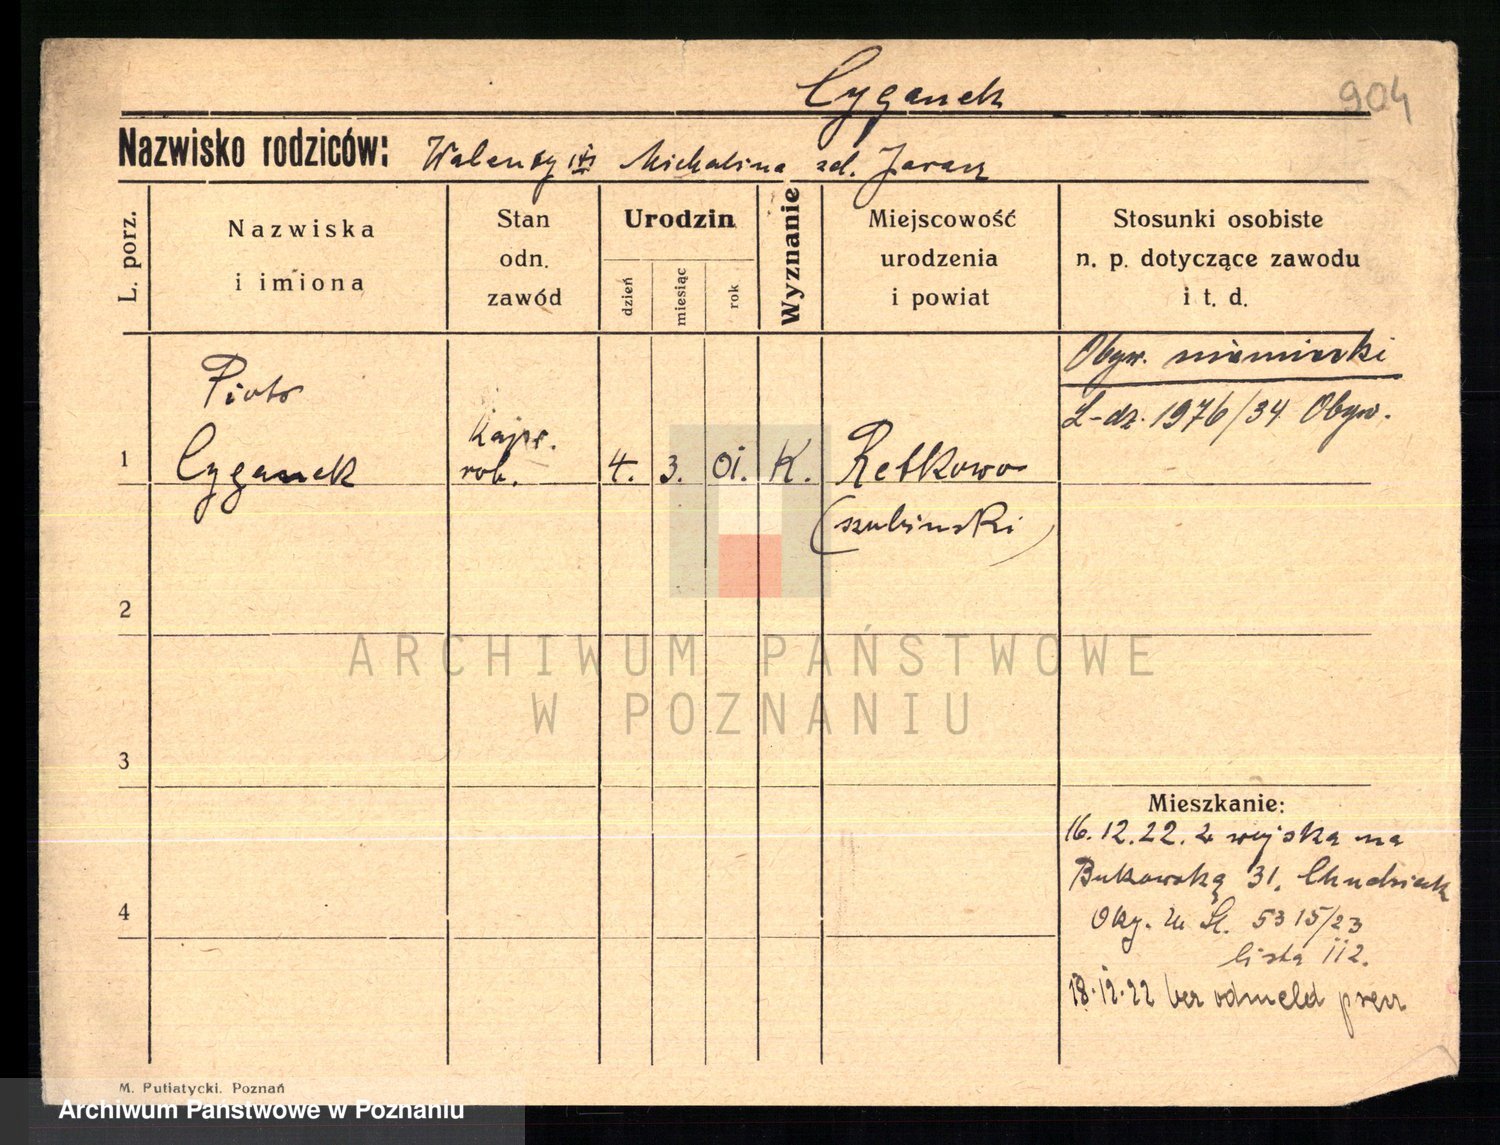 Cyganek
904
Nazwisko rodziców: Walenty Michalina zd. Jarasz
L. porz.
Nazwiska
i imiona
Stan
odn.
zawód
Urodzin
dzień
miesiąc
rok
Wyznanie
Miejscowość
urodzenia
i powiat
Stosunki osobiste
n. p. dotyczące zawodu
i t. d.
Obyw. niemiecki
L-dz. 1976/34 Obyw.
Piotr
1 Cyganek rob. 4. 3. 01. K. Retkowo
(szubinski)
2
3
4
Mieszkanie:
16.12.22. z wojska na
Bukowską 31, Chudziak
5315/23
lista 112.
18.12.22 bez odmeld
M. Putiatycki. Poznań
ARCHIWUM PAŃSTWOWE
W POZNANIU
Archiwum Państwowe w Poznaniu